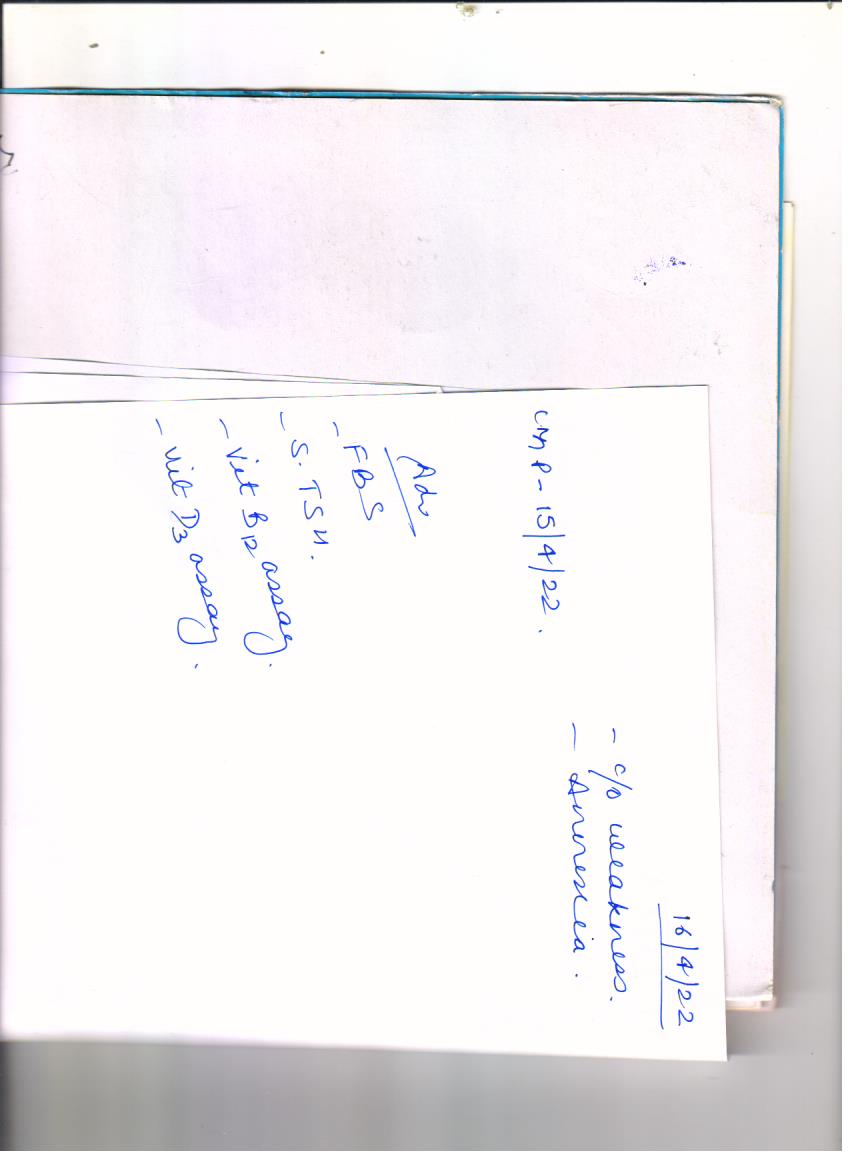 16/4/22
- c/o weakness.
- Anorexia.
LMP - 15/4/22.
Adv
- FBS
- S. TSH.
- Vit B12 assay.
- Vit D3 assay.